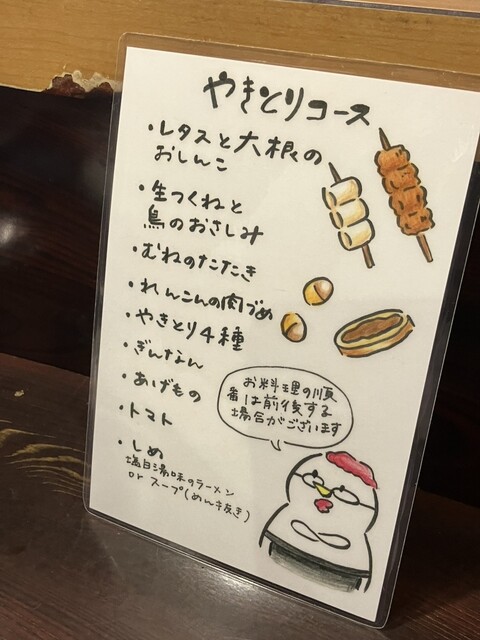 やきとりコース
・レタスと大根の
おしんこ
・生つくねと
鳥のおさしみ
・むねのたたき
・れんこんの肉づめ
・やきとり4種
・ぎんなん
・あげもの
・トマト
・しめ
塩白湯味のラーメン
or スープ(めん抜き)
お料理の順
番は前後する
場合がございます